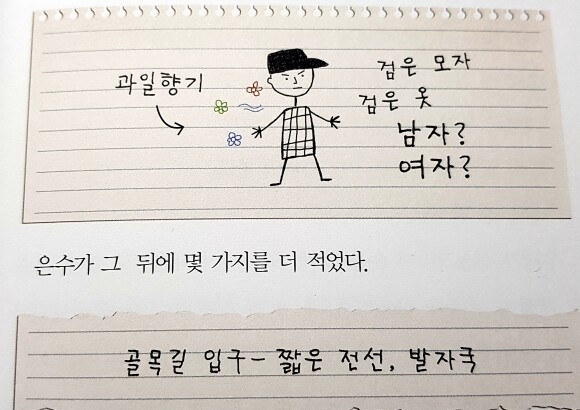 검은 모자
과일향기
검은 옷
남자?
여자?
은수가 그 뒤에 몇 가지를 더 적었다.
골목길 입구- 짧은 전선, 발자국